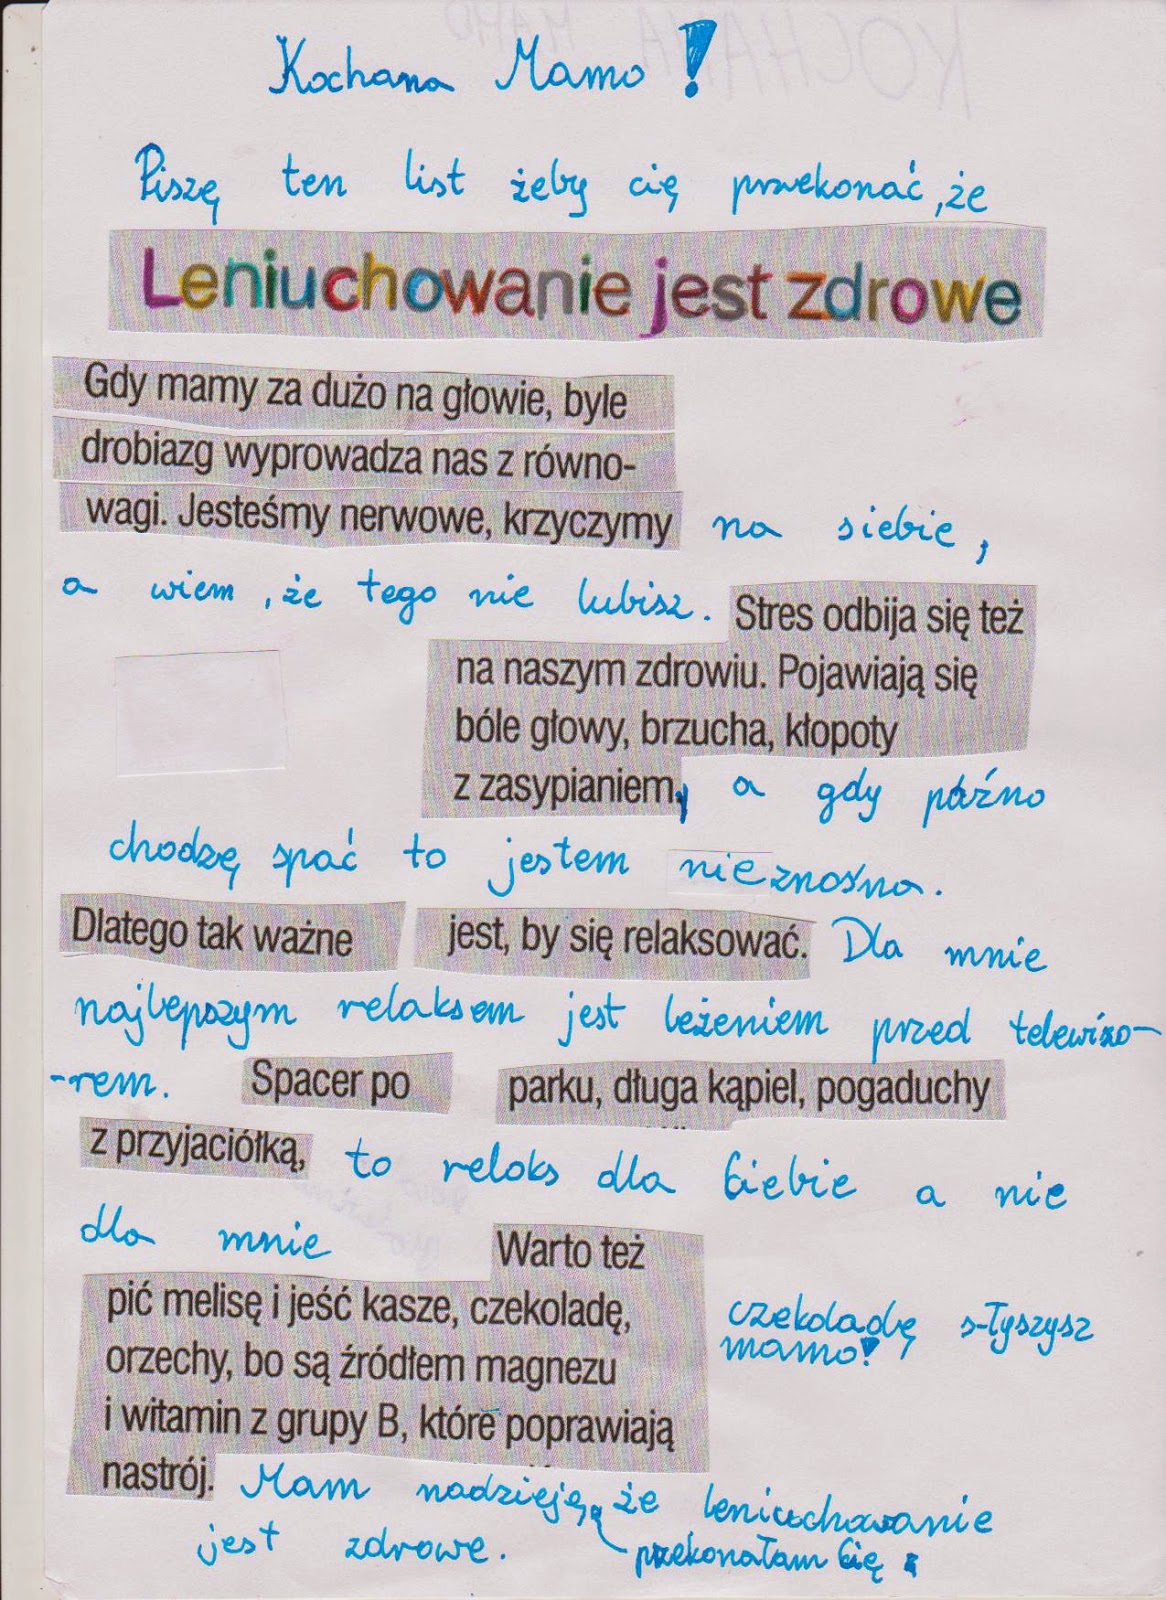 Kochana Mamo!
Piszę ten list żeby cię przekonać, że
Leniuchowanie jest zdrowe
Gdy mamy za dużo na głowie, byle
drobiazg wyprowadza nas z równo-
wagi. Jesteśmy nerwowe, krzyczymy na siebie,
a wiem, że tego nie lubisz. Stres odbija się też
na naszym zdrowiu. Pojawiają się
bóle głowy, brzucha, kłopoty
z zasypianiem, a gdy późno
chodzę spać to jestem nieznośna.
Dlatego tak ważne jest, by się relaksować. Dla mnie
najlepszym relaksem jest leżeniem przed telewizo-
-rem. Spacer po parku, długa kąpiel, pogaduchy
z przyjaciółką, to relaks dla Ciebie a nie
dla mnie Warto też
pić melisę i jeść kasze, czekoladę, czekoladę słyszysz
orzechy, bo są źródłem magnezu mamo!
i witamin z grupy B, które poprawiają
nastrój. Mam nadzieję, że leniuchowanie
jest zdrowe. przekonałam Cię